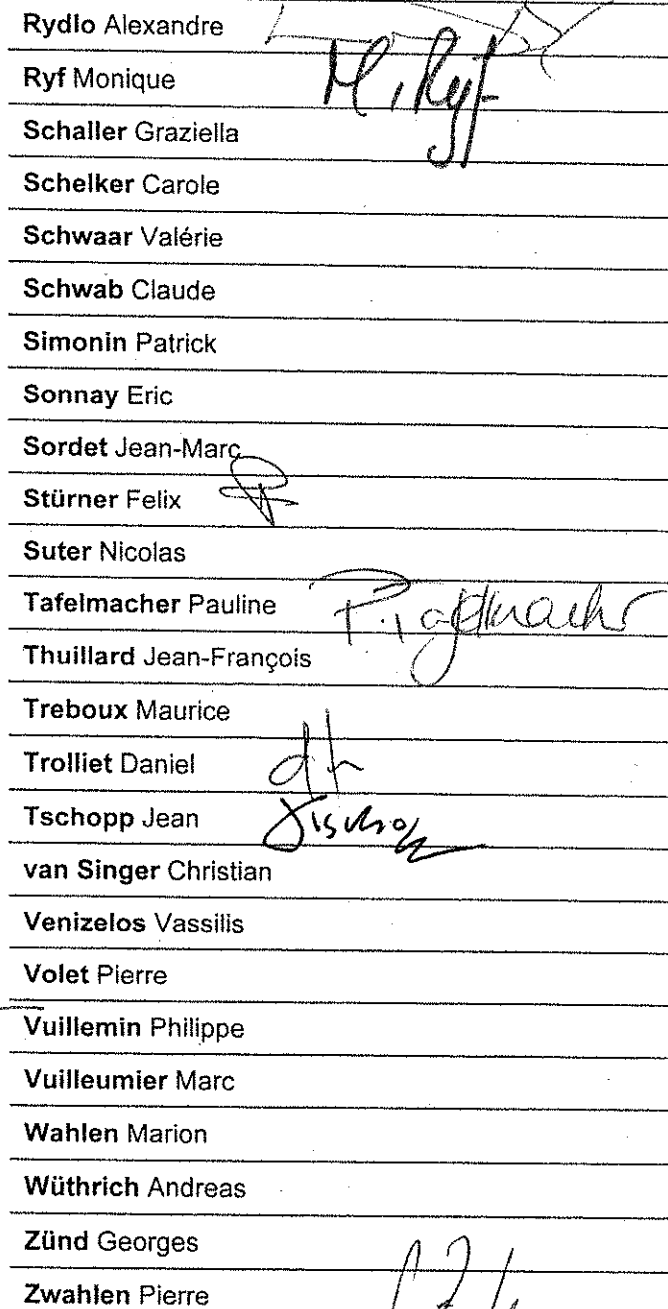 Rydlo Alexandre
Ryf Monique M. Ryf
Schaller Graziella
Schelker Carole
Schwaar Valérie
Schwab Claude
Simonin Patrick
Sonnay Eric
Sordet Jean-Marc
Stürner Felix
Suter Nicolas
Tafelmacher Pauline P. Tafelmacher
Thuillard Jean-François
Treboux Maurice
Trolliet Daniel
Tschopp Jean
van Singer Christian
Venizelos Vassilis
Volet Pierre
Vuillemin Philippe
Vuilleumier Marc
Wahlen Marion
Wüthrich Andreas
Zünd Georges
Zwahlen Pierre